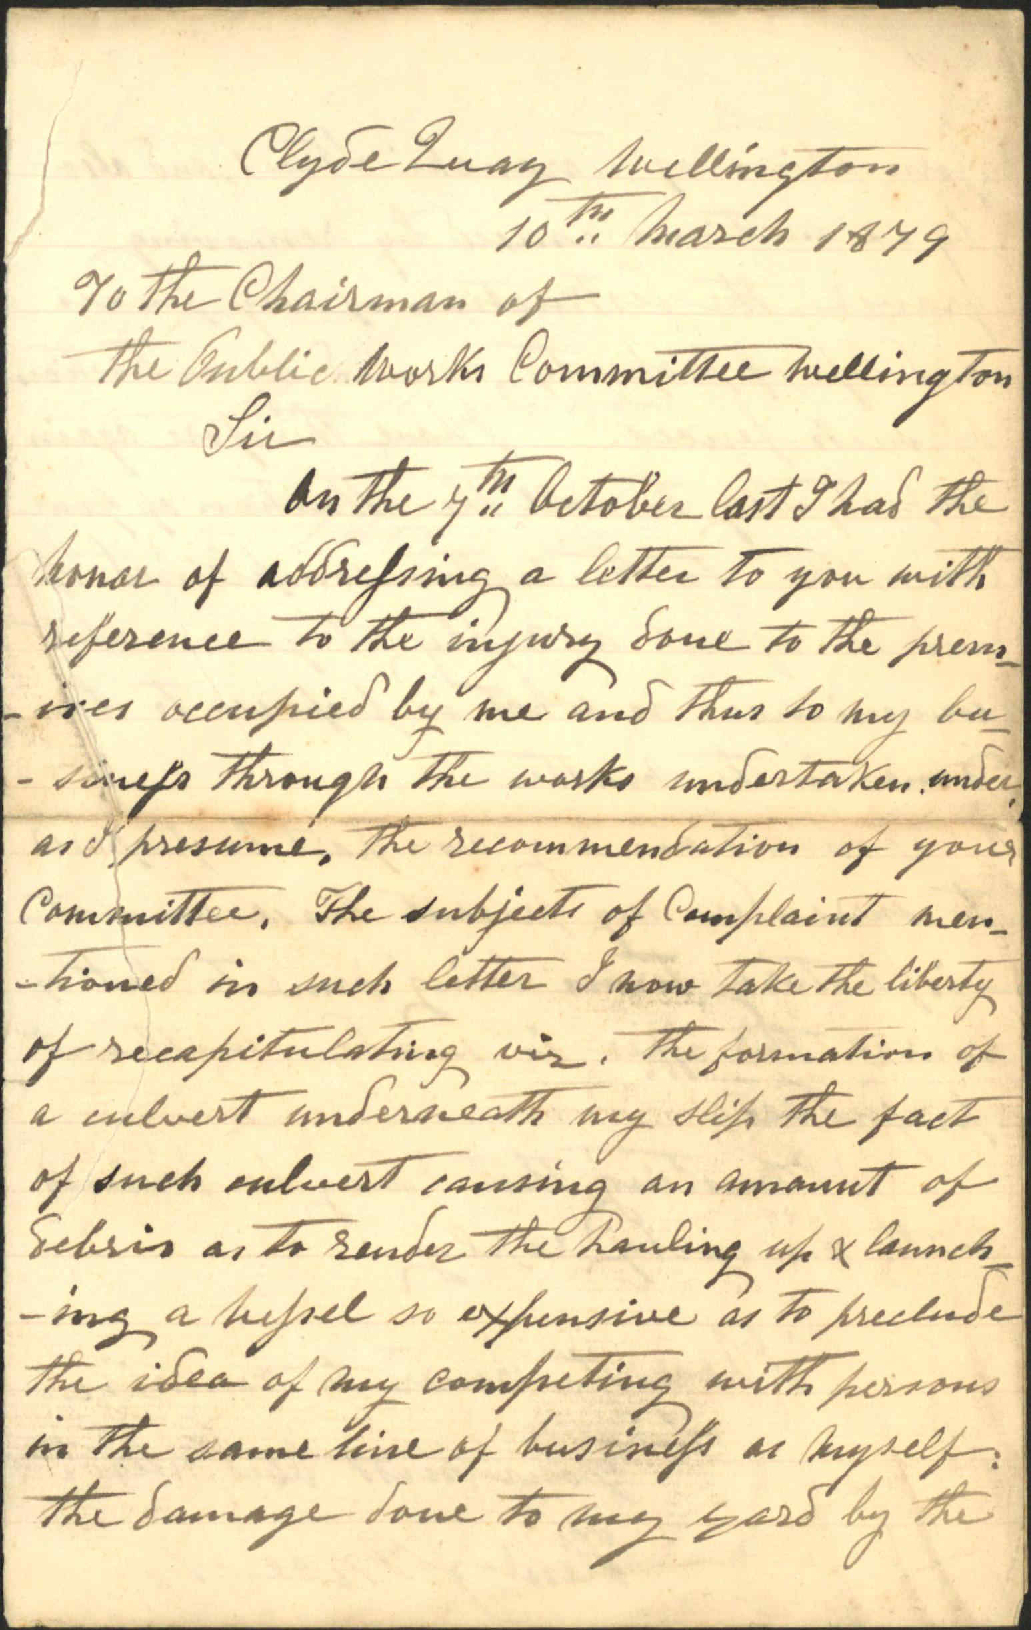 Clyde Quay Wellington
10th March 1879
To the Chairman of
the Public Works Committee Wellington
Sir
On the 7th October last I had the
honor of addressing a letter to you with
reference to the injury done to the prem-
-ises occupied by me and thus to my bu-
-siness through the works undertaken under,
as I presume, the recommendation of your
Committee. The subjects of Complaint men-
-tioned in such letter I now take the liberty
of recapitulating viz. the formation of
a culvert underneath my slip the fact
of such culvert causing an amount of
debris as to render the hauling up & launch-
-ing a vessel so expensive as to preclude
the idea of my competing with persons
in the same line of business as myself:
the damage done to my yard by the